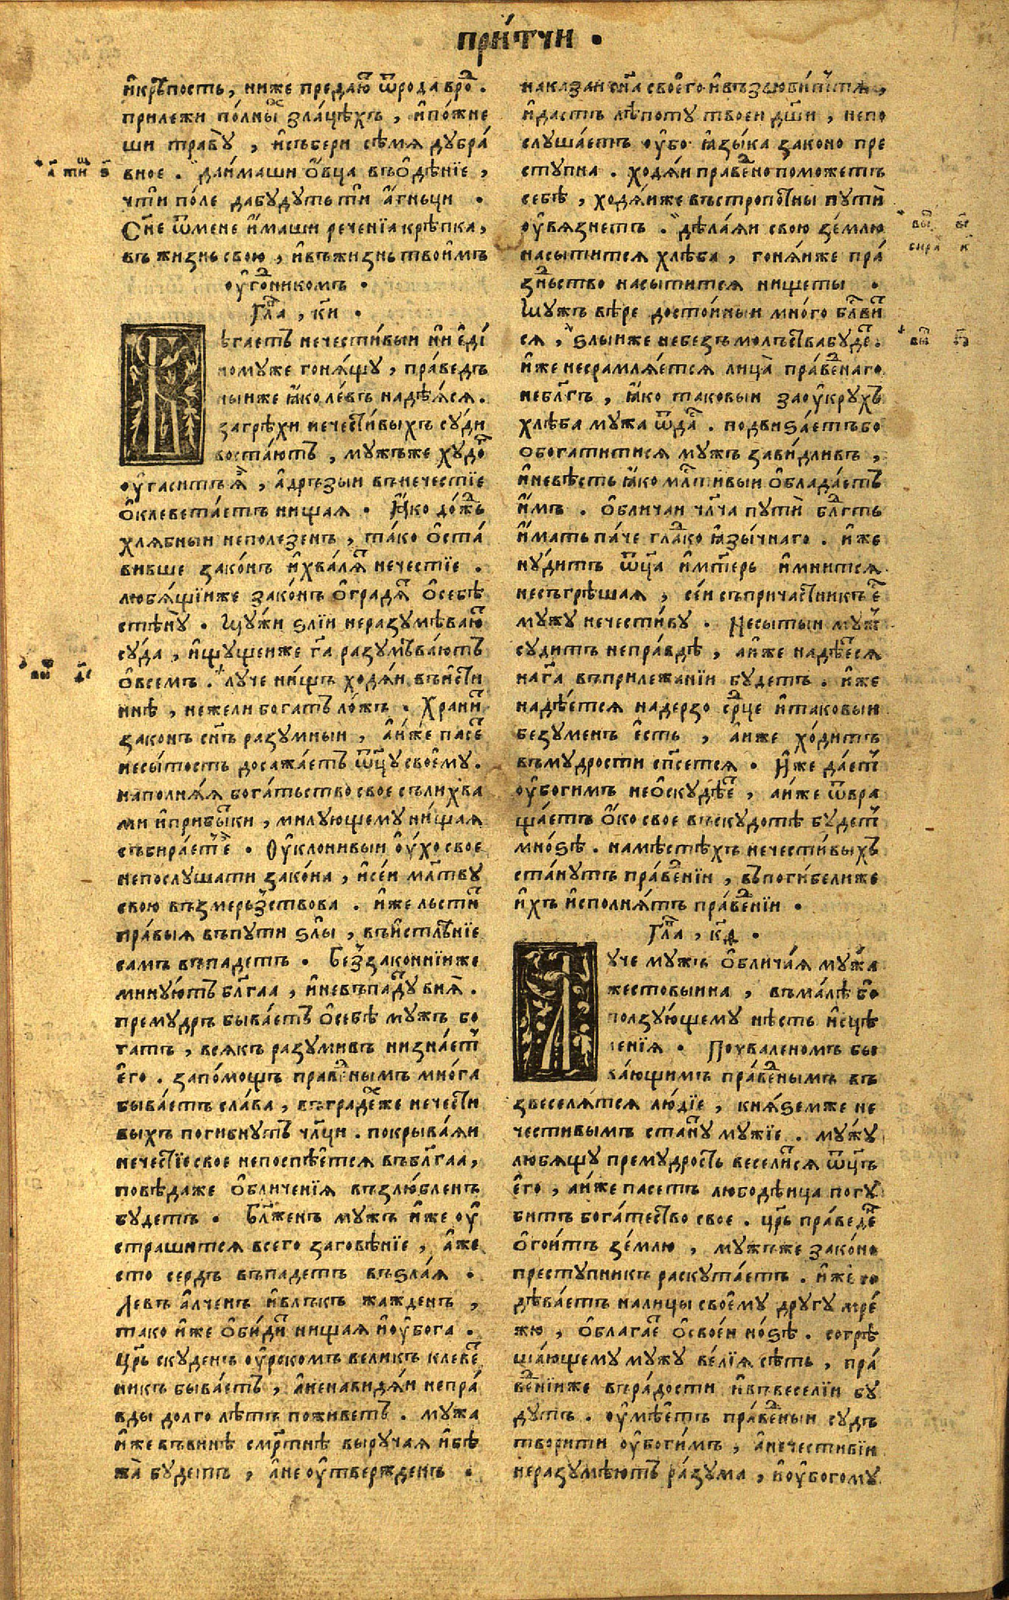 при́тчи .
и҆крѣ́пость , ниже предаю҆тъ ѿрода врⷣо .
прилежи по́лныⷨ зла́цѣхъ , и҆пожне
ши травѹ̀ , и҆събери сѣ́мѧ дубра́
вное . даи́маши о҆́вца въѻ҆дѣ́нїе ,
чти по́ле дабудуть ти а҆́гньци .
Сн҃е ѿмене и҆́маши речє́нїа крѣ́пка ,
въ жи́знь свою̀ , и҆въжи́знь твои́мъ
ѹ҆го́дникомъ .
Гла , ки .
Бѣ́гаетъ нечести́выи ни е҆ди́
номуже гонѧ́щу , пра́ведъ
ныиже ꙗ҆́ко ле́въ надѣ́ѧсѧ .
загрѣ́хи нечести́выхъ суди
востаю́тъ , мужъже худо́гъ
ѹ҆гаситъ ѧ҆̀ , а҆дръзыи внечестїе
ѻ҆клевета́етъ ни́щаѧ . Ꙗ҆́ко до́ждь
хлѧ́бныи неполезенъ , та́ко ѻ҆ста́
вивше зако́нъ и҆хва́лѧтъ нече́стїе .
любѧ́щїиже зако́нъ ѻ҆градѧ́тъ ѻ҆себѣ̀
стѣ́ну . Мужи ѕлїи неразумѣваютъ
суда̀ , и҆щущеиже га҃ разумѣва́ютъ
ѻ҆всемъ . луче ни́щъ ходѧ́и въи҆́сти
ннѣ , не́жели бога́тъ ло́жъ . Хранѧ́и
зако́нъ сн҃ъ разумныи , а҆и́же пасе́тъ
несы́тость досажа́етъ ѿц҃у своє́му .
наполнѧ́ѧ бога́тьство свое съли́хва
ми и҆прибы́тки , ми́лующему ни́щаѧ
събира́етъ е҆̀ . Ѹ҆клони́выи ѹ҆́хо свое
непослушати зако́на , и҆се́и мл҃тву
свою въз̾мерьз̾ствова . и҆́же льсти́тъ
пра́выѧ въпути ѕлы̀ , въи҆стлѣ́нїе
самъ въпадетъ . Без̾зако́ннїиже
мину́ютъ бл҃гаѧ , и҆невъпаду́тъ внѧ̀ .
премудръ быва́етъ ѻ҆себѣ̀ мужъ бо
гатъ , всѧ́къ разуми́въ ни зна́етъ
е҆го . запо́мощъ праве́днымъ мно́га
быва́етъ сла́ва , въградѣ́хъже нечести
выхъ поги́бнутъ чл҃ци . покрыва́ѧи
нече́стїе свое непоспѣ́етсѧ въбл҃гаѧ ,
повѣ́даже ѻ҆бличе́нїѧ възлюбленъ
будетъ . Бл҃женъ мужъ и҆́же ѹ҆
страшитсѧ всего загове́нїе , а҆́же
сто сердъ въпадетъ въѕла́ѧ .
Левъ а҆́лченъ и҆влъкъ жажденъ ,
тако и҆же ѻ҆би́дитъ ни́щаѧ и҆ѹ҆бога .
Цр҃ь скуденъ ѹ҆рокомъ вели́къ клевет
никъ быва́етъ , а҆ненави́дѧи непра́
вды до́лго лѣ́тъ поживе́тъ . мужа
и҆́же въвинѣ̀ смр҃тнѣ выруча́ѧ и҆бѣ
жа̀ будетъ , а҆не ѹ҆твержденъ .
наказаи сн҃а своего и҆възлюби́тътѧ ,
и҆да́стъ лѣ́поту твоеи дш҃и , непо
слуша́етъ ѹ҆бо ꙗ҆зы́ка законо пре
ступна . ходѧ́и праве́дно помо́жетъ
себѣ̀ , ходѧ́иже въстропо́тны пути
ѹ҆вѧ́знетъ . дѣ́лаѧи свою зе́млю
насы́титсѧ хлѣба , гонѧ́иже пра́
зньство насы́титсѧ нищеты̀ .
Мужъ вѣ́ре досто́иныи мно́го бл҃ви́т
сѧ , ѕлы́иже небезъмолъ́ства буде́тъ .
и҆́же несрамлѧ́етсѧ лица̀ праве́днаго
небл҃гъ , ꙗ҆́ко таковыи заѹ҆круху
хлѣба мужа ѿда́стъ . подвиѕа́етъбо
ѻ҆богати́тисѧ мужъ завидли́въ ,
и҆невѣсть ꙗ҆́ко мл҃тивыи ѻ҆блада́етъ
и҆́мъ . ѻ҆блича́и чл҃ча пути̑ бл҃гть
и҆́мать па́че гла́дко ꙗ҆зы́чнаго . и҆́же
нудитъ ѿц҃а и҆мт҃ерь и҆мни́тсѧ
несъгрѣшаѧ , се́и съприча́стникъ е҆́стъ
мужу нечести́ву . Несытыи мужъ
судитъ непра́вдѣ , а҆и́же надѣ́есѧ
на гд҃а въприлежа́нїи будетъ . и҆́же
надѣ́етсѧ наде́рзо ср҃це и҆таковыи
безуменъ е҆́сть , а҆и́же хо́дитъ
въмудрости сп҃сетсѧ . И҆́же дае́тъ
ѹ҆бо́гимъ неѻ҆скудѣ́етъ , а҆и́же ѿвра
ща́етъ ѻ҆́ко свое въскудотѣ̀ будетъ
мно́ѕѣ . намѣ́стѣхъ нечести́выхъ
ста́нутъ праве́днїи , въпогибелиже
и҆хъ и҆спо́лнѧтъ праве́днїи .
Гла , кѳ .
Луче мужъ ѻ҆блича́ѧ мужа
жестовы́ина , въма́лѣ бо
ползующему нѣсть и҆сцѣ
ле́нїѧ . Похвале́номъ бы
ва́ющимъ праве́днымъ въ
звеселѧ́тсѧ лю́дїе , кнѧ́ѕемже не
чести́вымъ ста́нутъ мужїе . мужу
любѧ́щу прему́дрость весели́тсѧ ѿц҃ъ
е҆го , а҆и́же пасе́тъ любодѣ́ица погу
битъ бога́тество свое . цр҃ь праведе́нъ
ѻ҆гои́тъ зе́млю , мужъже законо
преступникъ раскута́етъ . и҆́же го
дѣва́етъ налицы̀ своему̀ другу мре́
жю , ѻ҆блага́етъ ѻ҆своеи но́ѕѣ . согрѣ
ша́ющему мужу ве́лїѧ сѣть , пра́
ве́днїиже въра́дости и҆ввеселїи бу
дутъ . ѹ҆мѣ́етъ праве́дныи судъ
твори́ти ѹ҆бо́гимъ , а҆нечести́вїи
неразумѣ́ютъ разума , и҆ѹ҆бо́гому